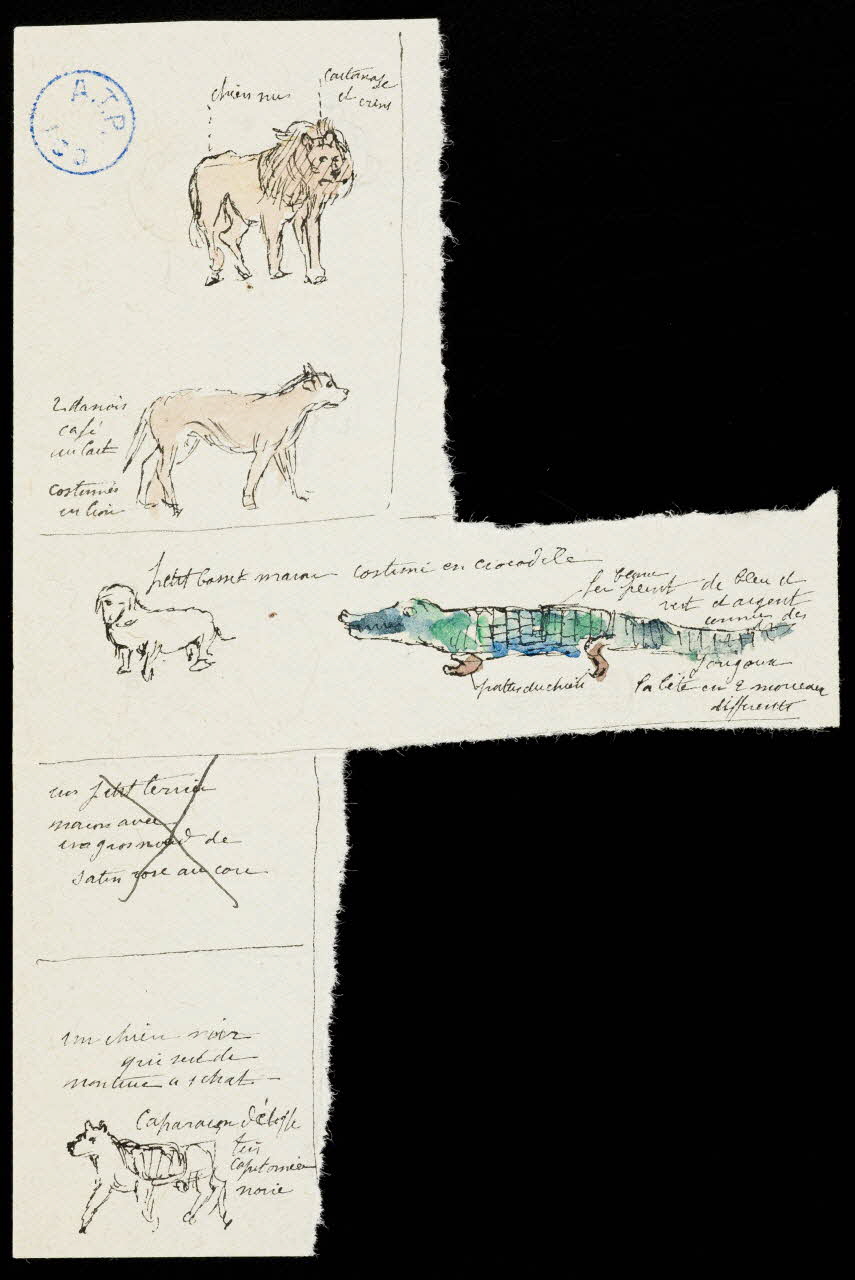 A.T.P.
chien nu
et crins
2 danois
café
au lait
costumés
en lion
petit basset marron costumé en crocodile
fer peint de bleu et
vert d'argent
comme des
joujoux
pattes du chien
la bête en 2 morceau
différents
un petit terrier
marron avec
un gros nœud de
satin rose au cou
un chien noir
qui sert de
monture a 1 chat
Caparaçon d'étoffe
très
capitonnée
noire